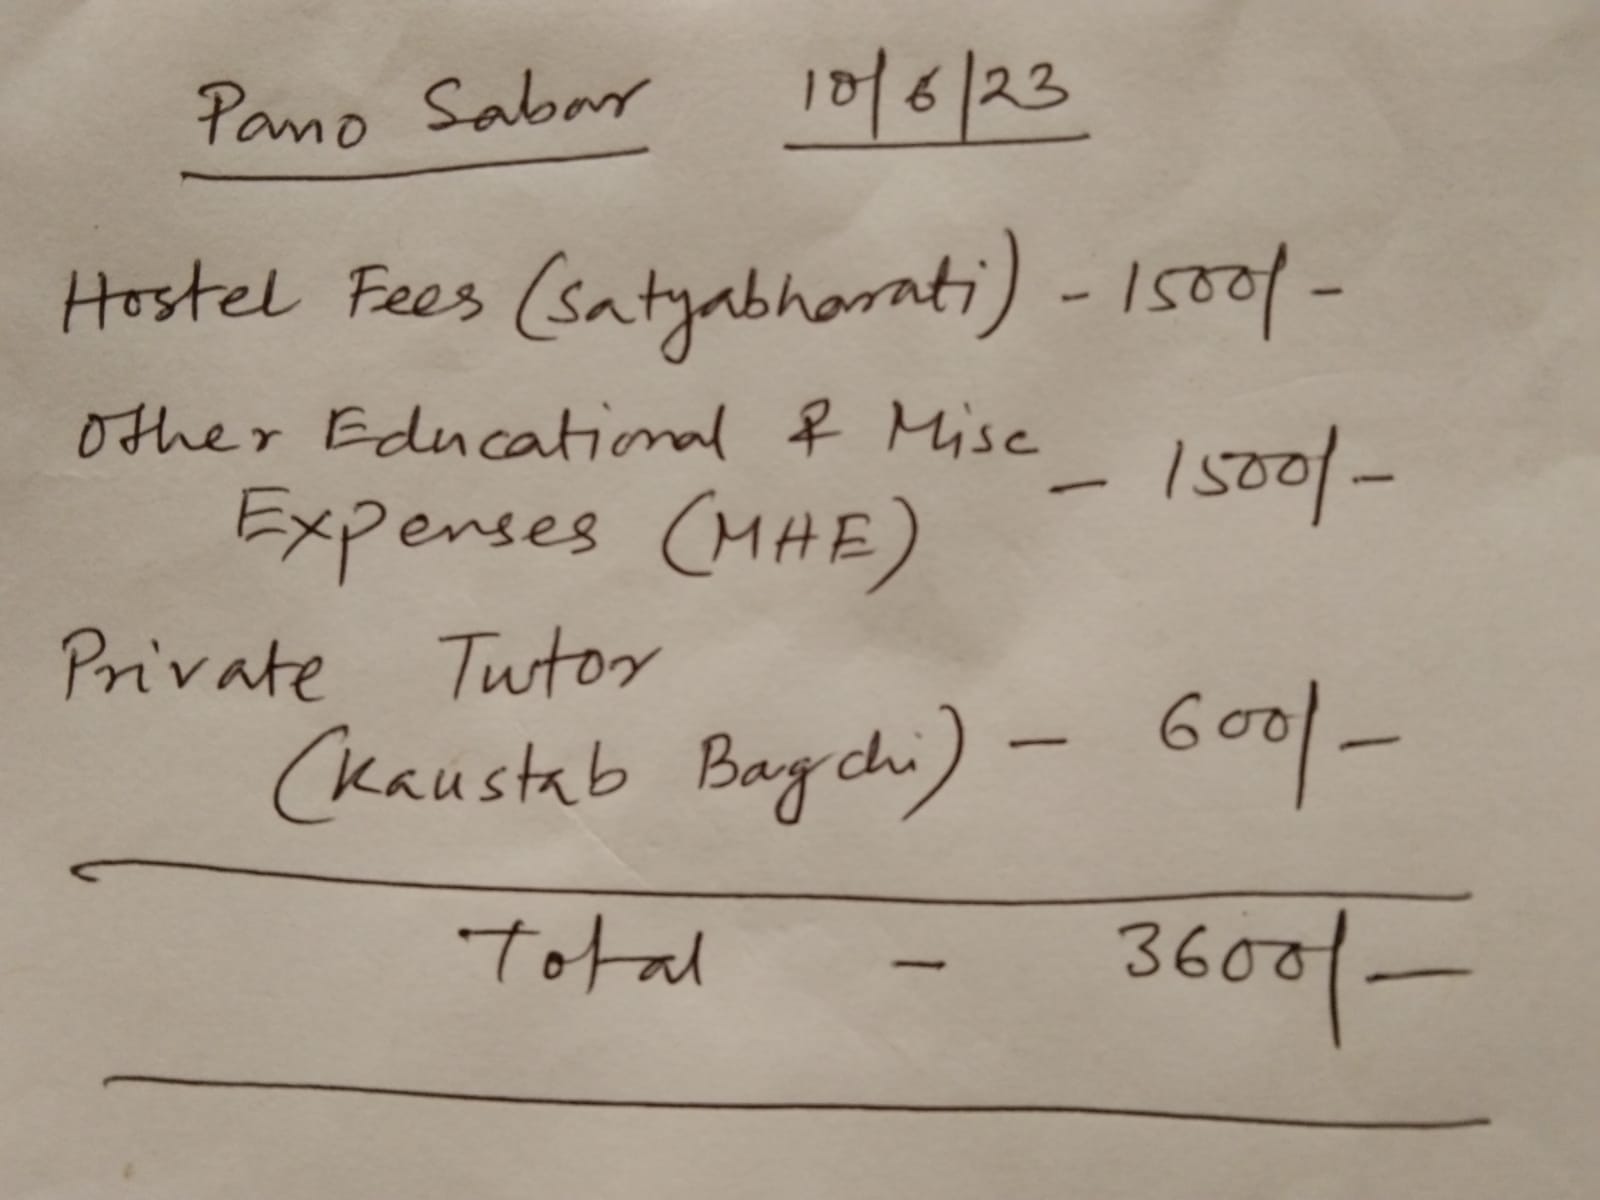 Pano Sabar 10/6/23
Hostel Fees (Satyabharati) - 1500/-
Other Educational & Misc
Expenses (MHE) - 1500/-
Private Tutor
(Kaustab Bagchi) - 600/-
Total - 3600/-